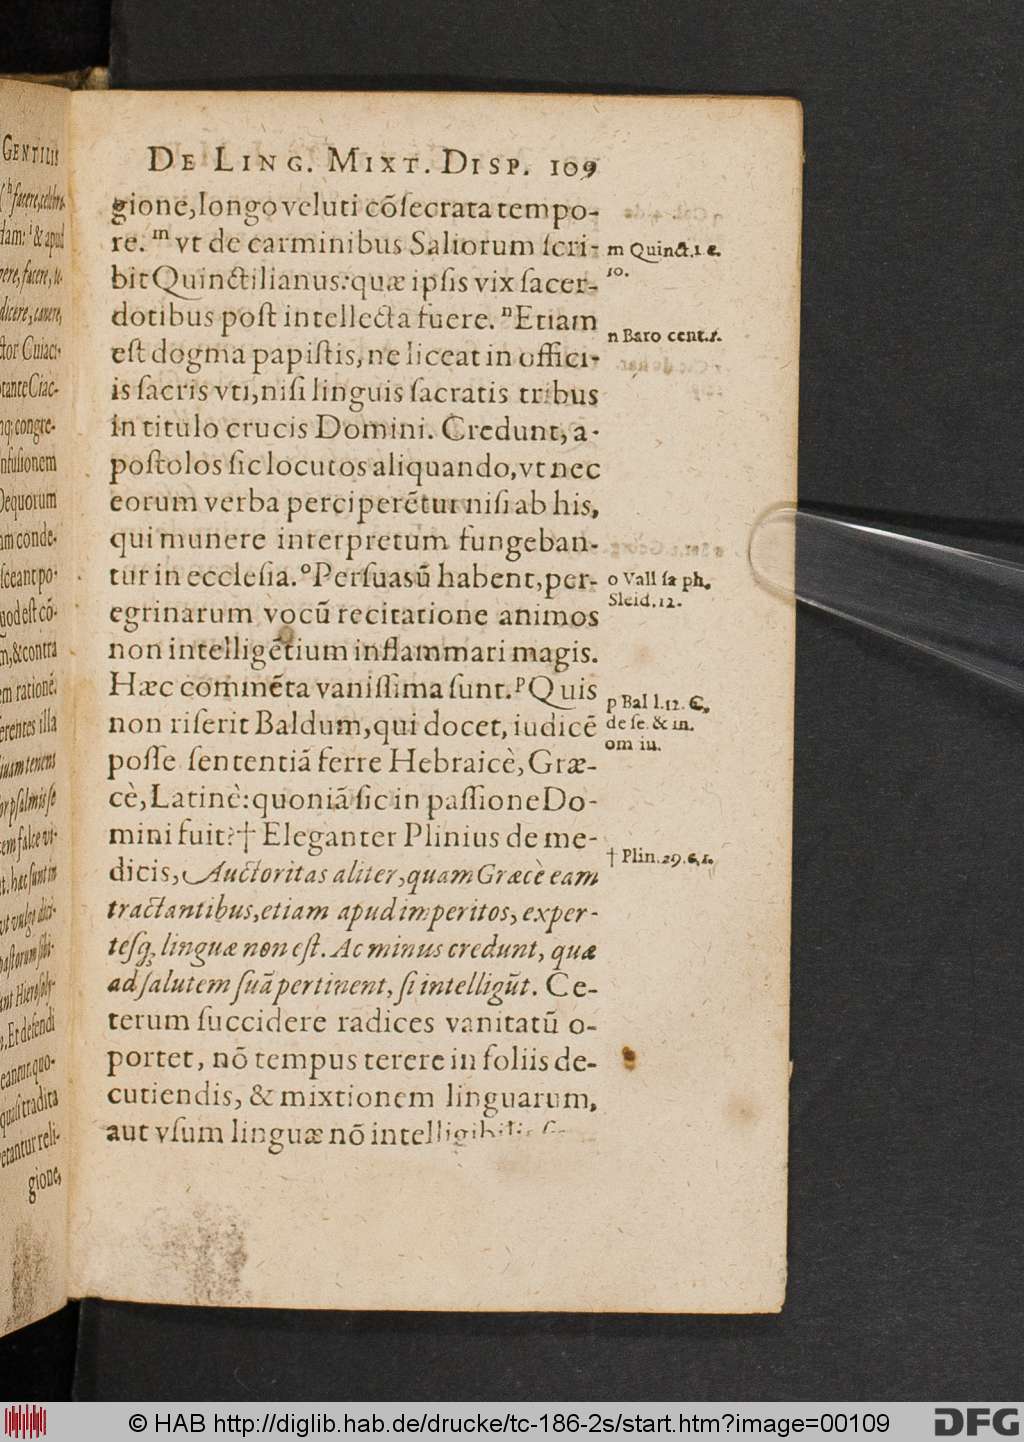 GENTILIS
(h facere, celebra-
dam: i & apud
dicere, canere,
ctor Cuiaci-
tante Ciac-
nq; congre-
nfusionem
Dequorum
am conde-
sceant po-
quod est cō-
m, & contra
em rationē.
ferentes illa
quam tenens
or psalmis se
tem falce vt-
t. hæc sunt in
vt vulgo dici-
pastorum sibi-
ant Hierosoly-
. Et defendi
eantur, quo-
quasi tradita
vetantur reli-
gione,
DE LING. MIXT. DISP. 109
gione, longo veluti cōſecrata tempo-
re. m vt de carminibus Saliorum ſcri-
bit Quinctilianus: quæ ipſis vix ſacer-
dotibus poſt intellecta fuere. n Etiam
eſt dogma papiſtis, ne liceat in offici-
is ſacris vti, niſi linguis ſacratis tribus
in titulo crucis Domini. Credunt, a-
poſtolos ſic locutos aliquando, vt nec
eorum verba perciperētur niſi ab his,
qui munere interpretum fungeban-
tur in eccleſia. o Perſuasū habent, per-
egrinarum vocū recitatione animos
non intelligētium inflammari magis.
Hæc commēta vaniſſima ſunt. p Quis
non riſerit Baldum, qui docet, iudicē
poſſe ſententiā ferre Hebraicè, Græ-
cè, Latinè: quoniā ſic in paſſione Do-
mini fuit? † Eleganter Plinius de me-
dicis, Auctoritas aliter, quam Græcè eam
tractantibus, etiam apud imperitos, exper-
tesq; linguæ non eſt. Ac minus credunt, quæ
ad ſalutem ſuā pertinent, ſi intelligūt. Ce-
terum ſuccidere radices vanitatū o-
portet, nō tempus terere in foliis de-
cutiendis, & mixtionem linguarum,
aut vſum linguæ nō intelligibilis
m Quinct. 1. c.
10.
n Baro cent. 1.
o Vall ſa ph.
Sleid. 12.
p Bal l. 12. C.
de ſe. & in.
om iu.
† Plin. 29. c. 1.
© HAB http://diglib.hab.de/drucke/tc-186-2s/start.htm?image=00109
DFG